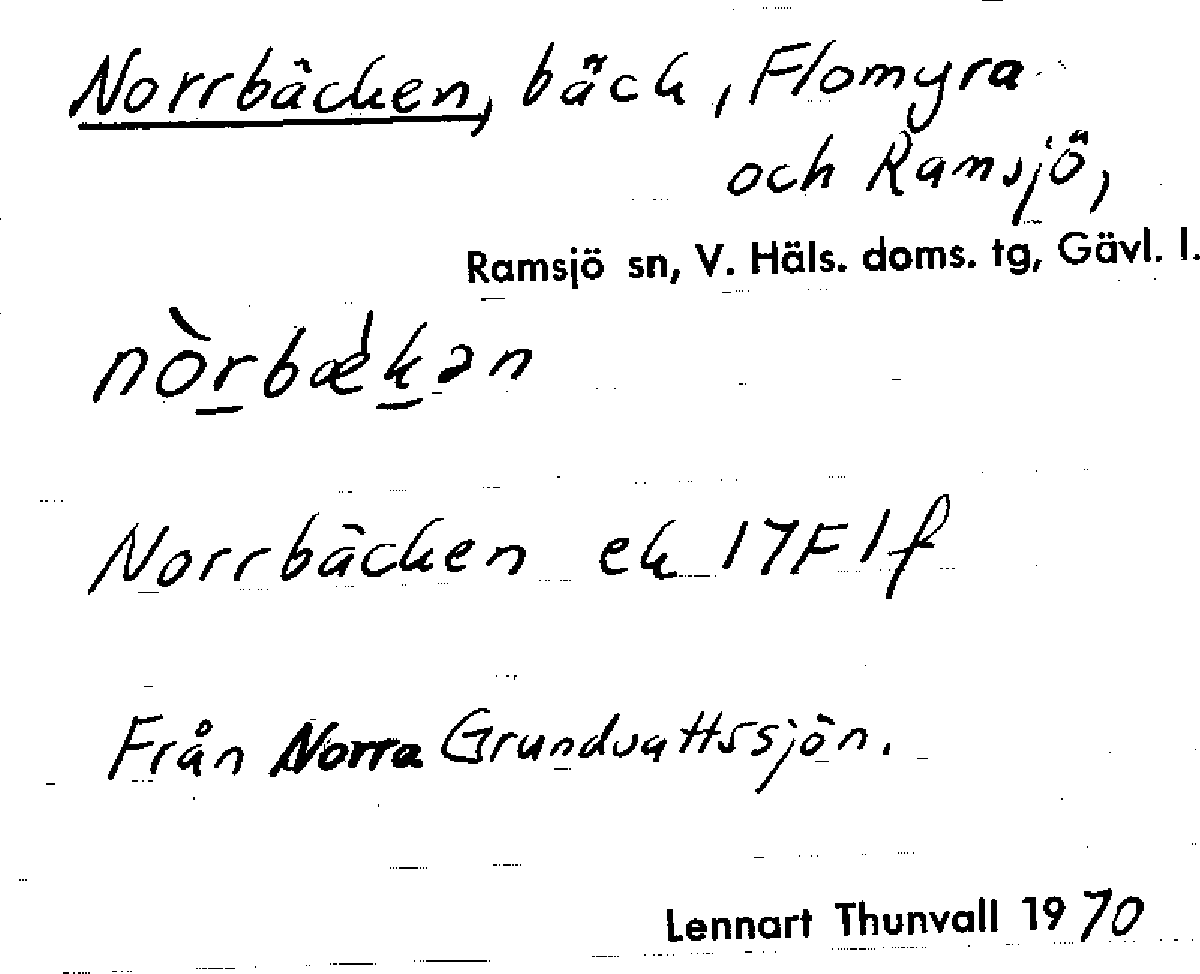 Norrbäcken, bäck, Flomyra
och Ramsjö,
Ramsjö sn, V. Häls. doms. tg, Gävl. l.
nòr̲bæ̍k̲ən
Norrbäcken ek 17F1f
Från Norra Grundvattssjön.
Lennart Thunvall 1970